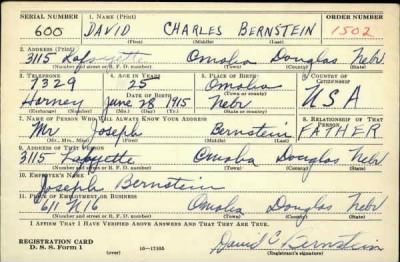 SERIAL NUMBER 1. NAME (Print) ORDER NUMBER
600 DAVID CHARLES BERNSTEIN 1502
(First) (Middle) (Last)
2. ADDRESS (Print)
3115 Lafayette Omaha Douglas Nebr
(Number and street or R. F. D. number) (Town) (County) (State)
3. TELEPHONE 4. AGE IN YEARS 5. PLACE OF BIRTH 6. COUNTRY OF CITIZENSHIP
7329 25 Omaha
DATE OF BIRTH (Town or county)
Harney June 28 1915 Nebr USA
(Exchange) (Number) (Mo.) (Day) (Yr.) (State or country)
7. NAME OF PERSON WHO WILL ALWAYS KNOW YOUR ADDRESS 8. RELATIONSHIP OF THAT PERSON
Mr Joseph Bernstein FATHER
(Mr., Mrs., Miss) (First) (Middle) (Last)
9. ADDRESS OF THAT PERSON
3115 Lafayette Omaha Douglas Nebr
(Number and street or R. F. D. number) (Town) (County) (State)
10. EMPLOYER'S NAME
Joseph Bernstein
11. PLACE OF EMPLOYMENT OR BUSINESS
611 N 16 Omaha Douglas Nebr
(Number and street or R. F. D. number) (Town) (County) (State)
I AFFIRM THAT I HAVE VERIFIED ABOVE ANSWERS AND THAT THEY ARE TRUE.
REGISTRATION CARD
D. S. S. Form 1 (over) David C. Bernstein
(Registrant's signature)